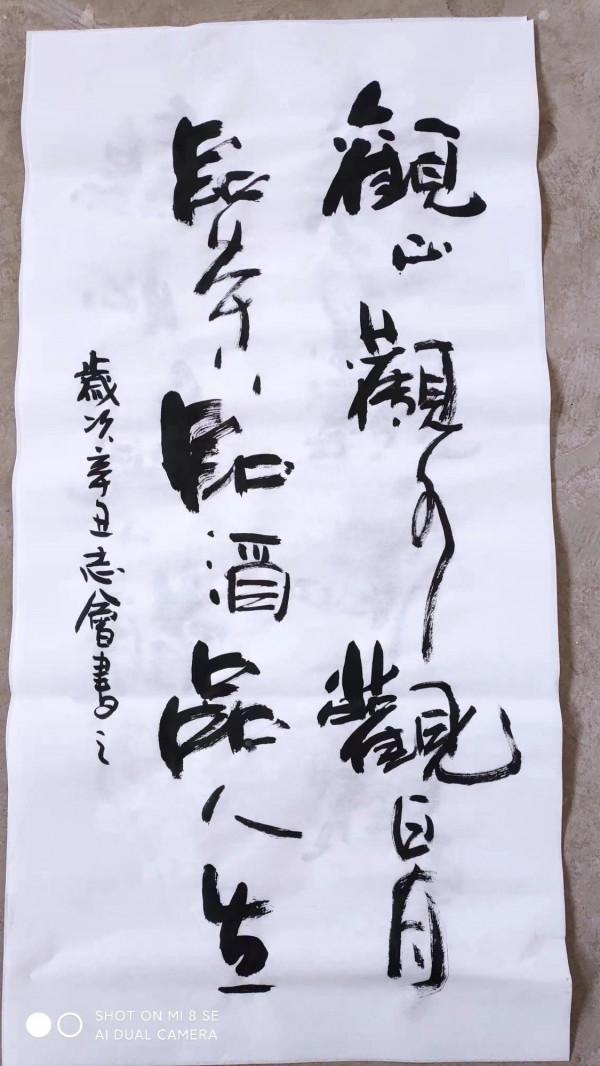 觀山觀水觀日月
品茶品酒品人生
歲次辛丑志會書之
SHOT ON MI 8 SE
AI DUAL CAMERA